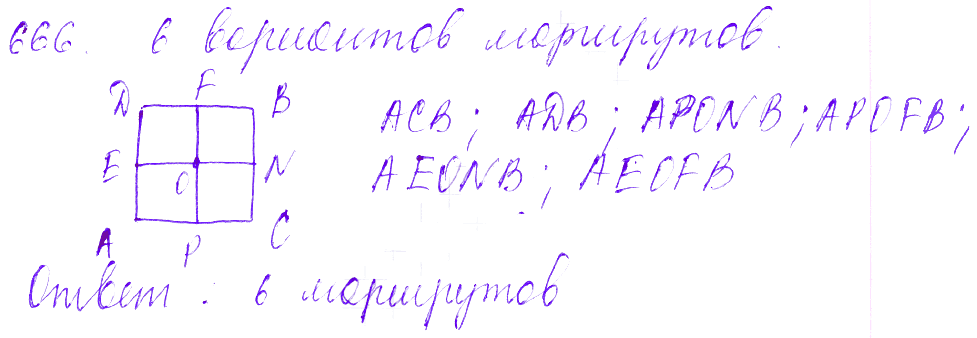 666. 6 вариантов маршрутов.
D F B
ACB; ADB; APONB; APOFB;
E O N
AEONB; AEOFB
A P C
Ответ: 6 маршрутов